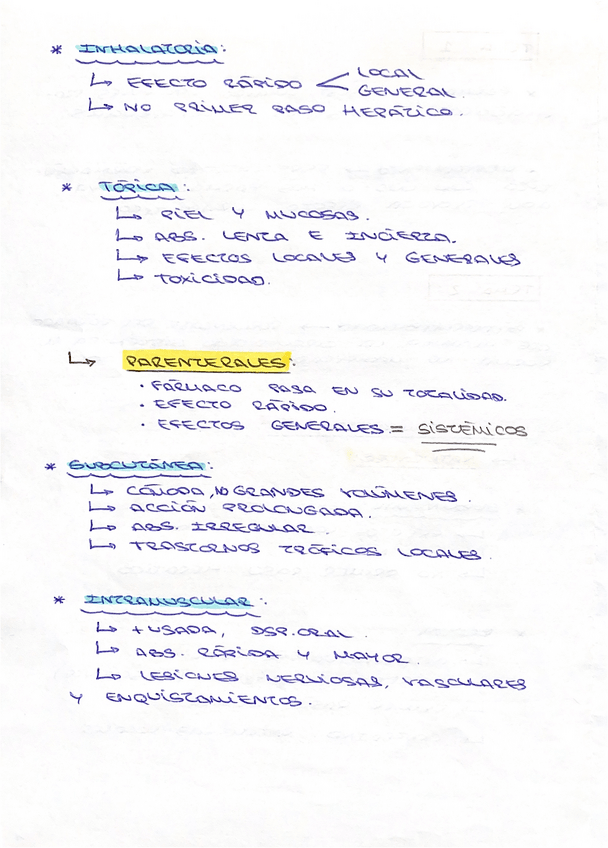 * INHALATORIA:
↳ EFECTO RÁPIDO < LOCAL
GENERAL.
↳ NO PRIMER PASO HEPÁTICO.
* TÓPICA:
↳ PIEL Y MUCOSAS.
↳ ABS. LENTA E INCIERTA.
↳ EFECTOS LOCALES Y GENERALES
↳ TOXICIDAD.
↳ PARENTERALES:
· FÁRMACO PASA EN SU TOTALIDAD.
· EFECTO RÁPIDO.
· EFECTOS GENERALES = SISTÉMICOS
* SUBCUTÁNEA:
↳ CÓMODA, NO GRANDES VOLÚMENES.
↳ ACCIÓN PROLONGADA.
↳ ABS. IRREGULAR.
↳ TRASTORNOS TRÓFICOS LOCALES.
* INTRAMUSCULAR:
↳ + USADA, DSP. ORAL.
↳ ABS. RÁPIDA Y MAYOR.
↳ LESIONES NERVIOSAS, VASCULARES
Y ENQUISTAMIENTOS.